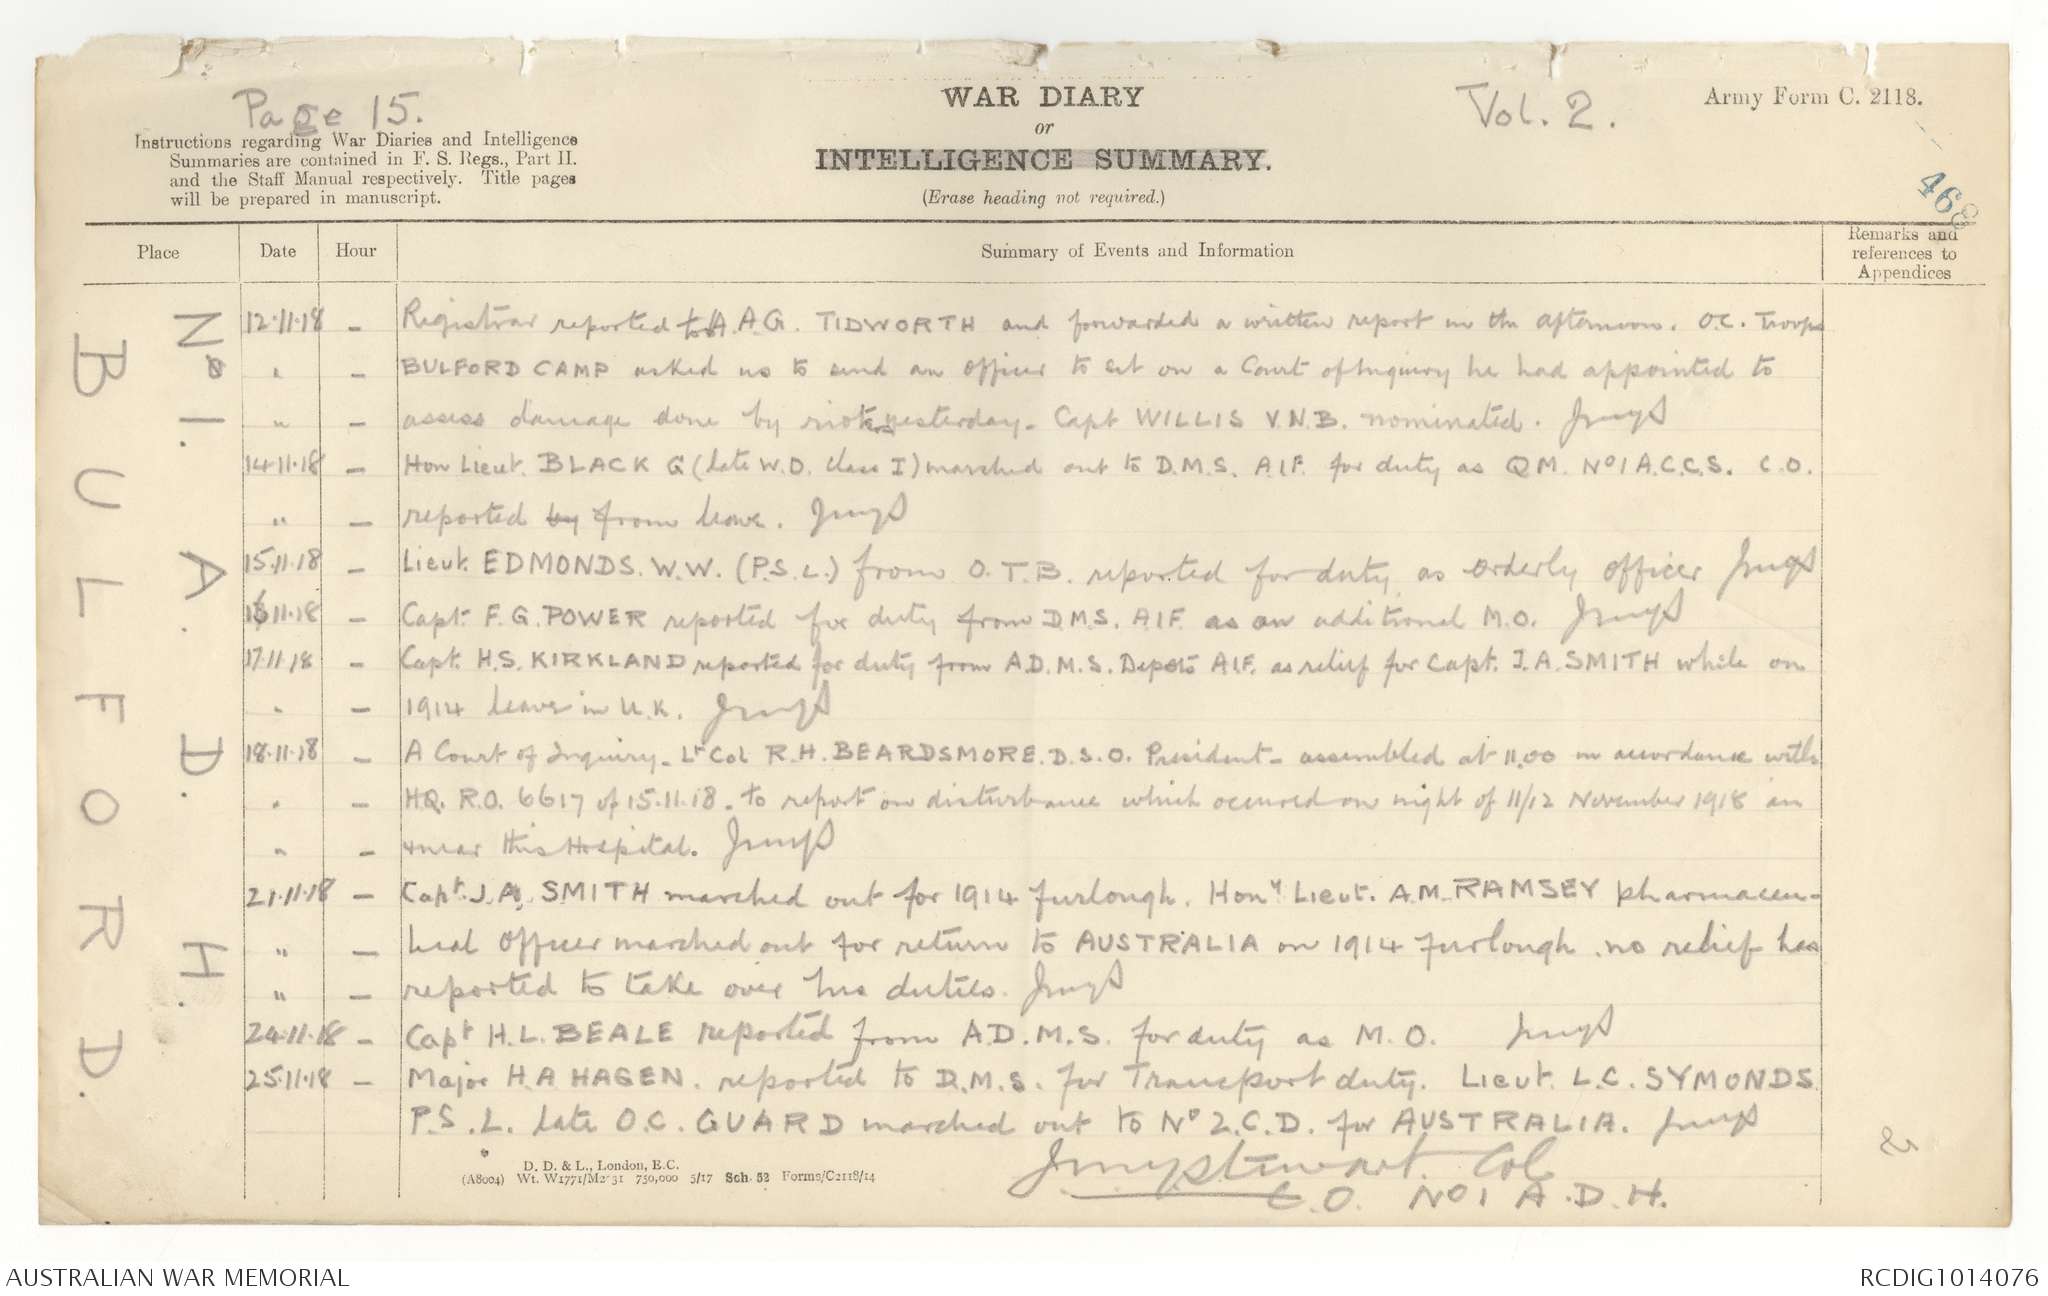 Page 15.
WAR DIARY
or
INTELLIGENCE SUMMARY.
(Erase heading not required.)
Vol. 2.
Army Form C. 2118.
Instructions regarding War Diaries and Intelligence
Summaries are contained in F. S. Regs., Part II.
and the Staff Manual respectively. Title pages
will be prepared in manuscript.
468
Place Date Hour Summary of Events and Information Remarks and
references to
Appendices
No 1. A. D. H.
BULFORD.
12.11.18 - Registrar reported to A.A.G. TIDWORTH and forwarded a written report in the afternoon. O.C. Troops
" - BULFORD CAMP asked us to send an officer to sit on a Court of Inquiry he had appointed to
" - assess damage done by rioters yesterday. Capt WILLIS V.N.B. nominated.
14.11.18 - Hon Lieut. BLACK G (late W.O. Class I) marched out to D.M.S. AIF. for duty as QM. No 1 A.C.C.S. C.O.
" - reported by from leave.
15.11.18 - Lieut. EDMONDS. W.W. (P.S.L.) from O.T.B. reported for duty as orderly officer
16.11.18 - Capt. F.G. POWER reported for duty from D.M.S. AIF. as an additional M.O.
17.11.18 - Capt. H.S. KIRKLAND reported for duty from A.D.M.S. Depots AIF. as relief for Capt. J.A. SMITH while on
" - 1914 leave in U.K.
18.11.18 - A Court of Inquiry - Lt Col R.H. BEARDSMORE. D.S.O. President - assembled at 11.00 in accordance with
" - HQ. R.O. 6617 of 15.11.18. to report on disturbance which occured on night of 11/12 November 1918 in
" - & near this Hospital.
21.11.18 - Capt. J.A. SMITH marched out for 1914 furlough. Hony Lieut. A.M. RAMSEY pharmaceu-
" - tical Officer marched out for return to AUSTRALIA on 1914 furlough. no relief has
" - reported to take over his duties.
24.11.18 - Capt H.L. BEALE reported from A.D.M.S. for duty as M.O.
25.11.18 - Major H.A HAGEN. reported to D.M.S. for Transport duty. Lieut. L.C. SYMONDS
P.S.L. late O.C. GUARD marched out to No 2.C.D. for AUSTRALIA.
Stewart. Col
C.O. No 1 A.D.H.
D. D. & L., London, E.C.
(A8004) Wt. W1771/M2 31 750,000 5/17 Sch. 52 Forms/C2118/14
AUSTRALIAN WAR MEMORIAL
RCDIG1014076